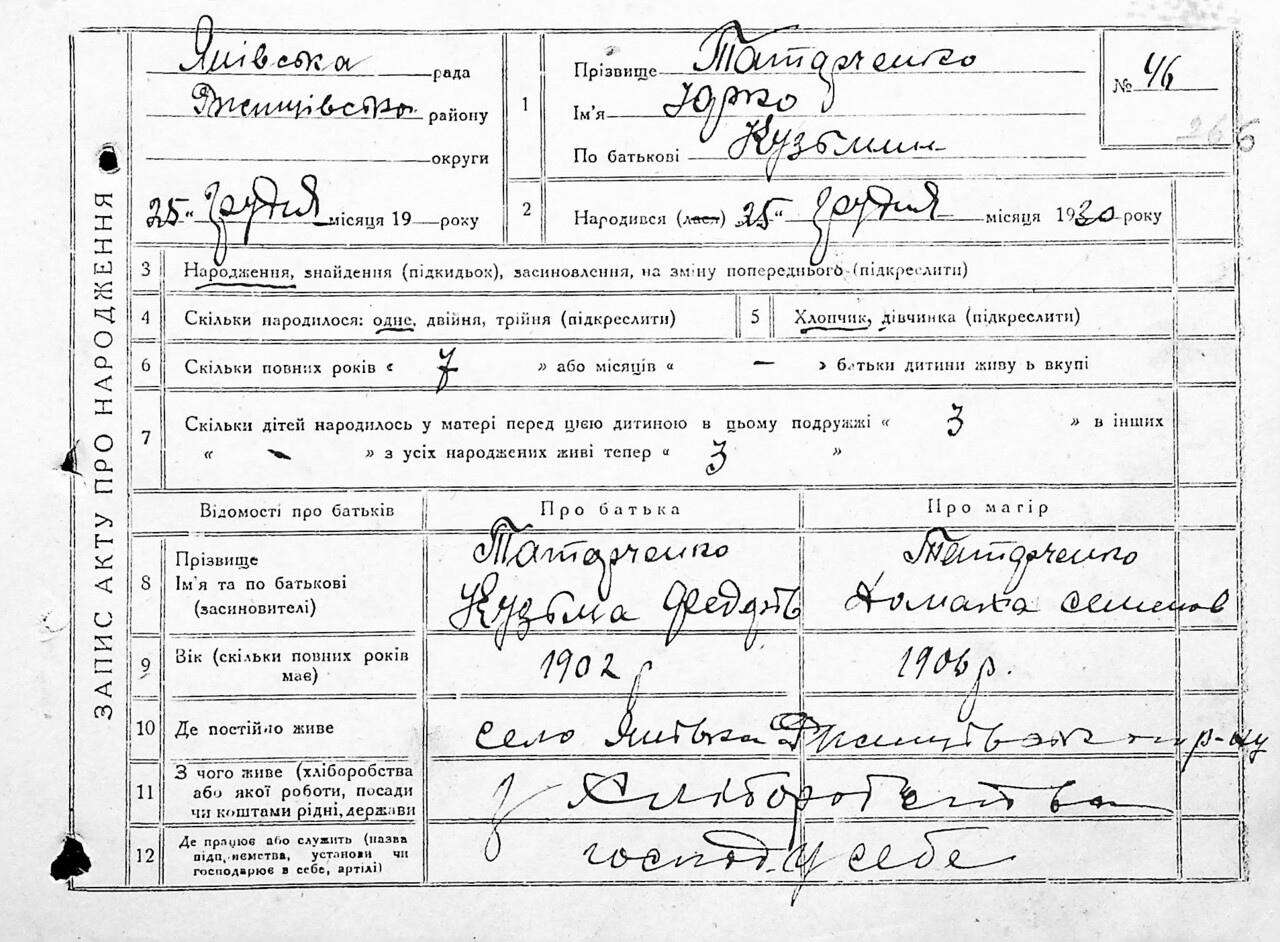 ЗАПИС АКТУ ПРО НАРОДЖЕННЯ
Янівська рада
району
округи
25" грудня місяця 19 — року
1
Прізвище Татарченко
Ім'я Юрко
По батькові Кузьмин
№ 46
266
2
Народився (лась) 25" грудня місяця 1930 року
3 Народження, знайдення (підкидьок), засиновлення, на зміну попереднього (підкреслити)
4 Скільки народилося: одне, двійня, трійня (підкреслити)
5 Хлопчик, дівчинка (підкреслити)
6 Скільки повних років « 7 » або місяців « — » батьки дитини живуть вкупі
7 Скільки дітей народилось у матері перед цією дитиною в цьому подружжі « 3 » в інших
« - » з усіх народжених живі тепер « 3 »
Відомості про батьків
Про батька
Про матір
8 Прізвище
Ім'я та по батькові
(засиновителі)
Татарченко
Кузьма
Татарченко
Домаха Семенов
9 Вік (скільки повних років
має)
1902 р
1906 р.
10 Де постійно живе
село р-ну
11 З чого живе (хліборобства
або якої роботи, посади
чи коштами рідні, держави
З хліборобства
12 Де працює або служить (назва
підприємства, установи чи
господарює в себе, артілі)
господ. у себе